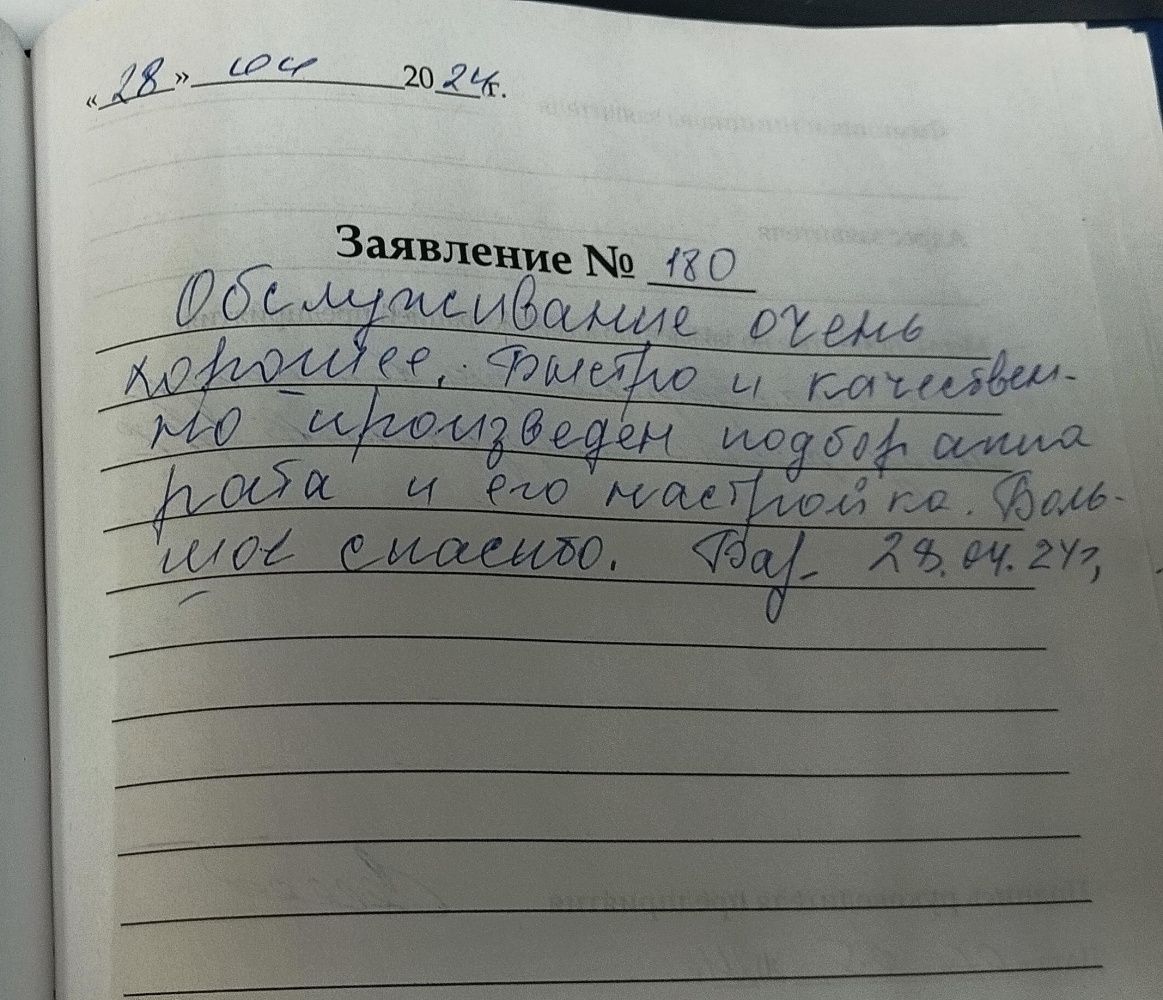 «28» 04 2024г.
Заявление № 180
Обслуживание очень
хорошее. Быстро и качествен-
но произведен подбор аппа
рата и его настройка. Боль-
шое спасибо. 28.04.24г,